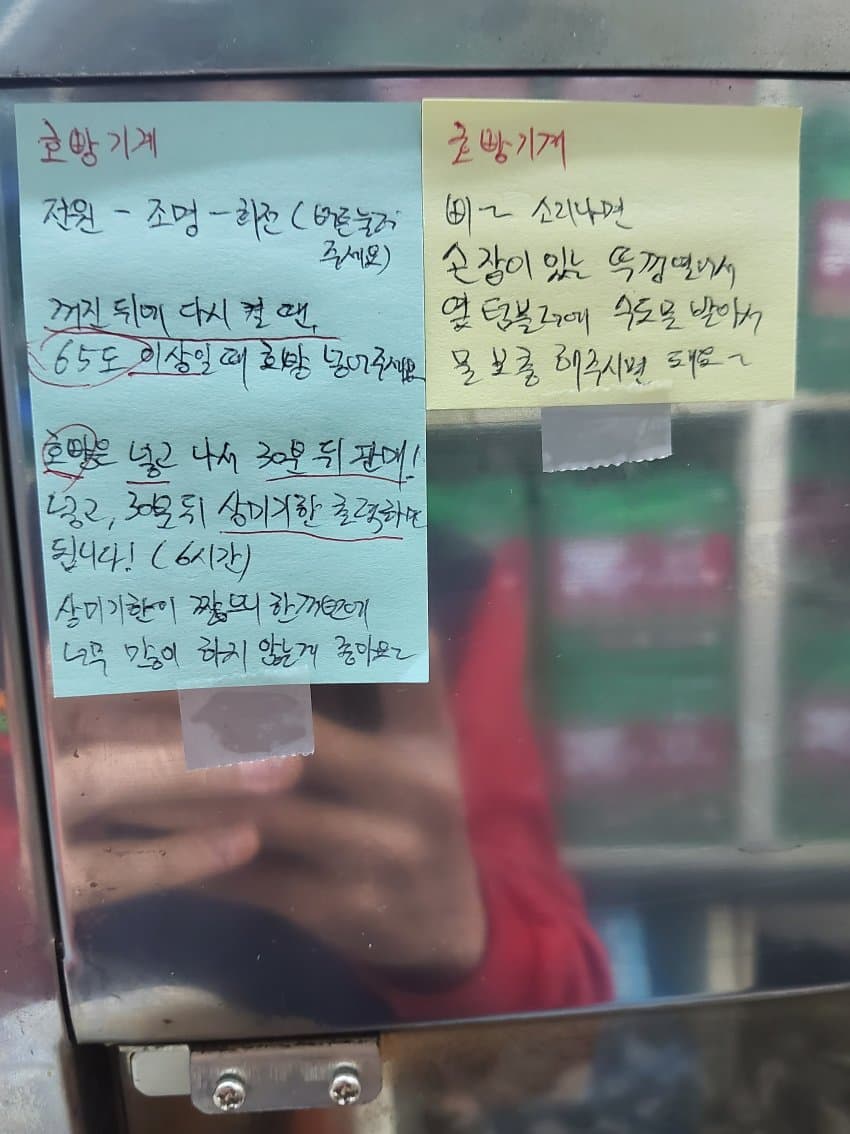 호빵기계
전원 - 조명 - 회전 (버튼눌러
주세요)
꺼진 뒤에 다시 켤 땐,
65도 이상일 때 호빵 넣어주세요
호빵은 넣고 나서 30분 뒤 판매!
넣고, 30분 뒤 상미기한 출력하면
됩니다! (6시간)
상미기한이 짧으니 한꺼번에
너무 많이 하지 않는게 좋아요~
호빵기계
삐~ 소리나면
손잡이 있는 뚜껑열어서
옆 텀블러에 수도물 받아서
물 보충 해주시면 돼요~